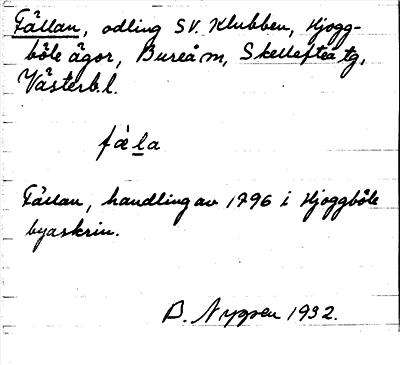 Fällan, odling SV. Klubben, Hjogg-
böle ägor, Bureå m, Skellefteå tg,
Västerb. l.
fä̀la
Fällan, handling av 1796 i Hjoggböle
byaskrin.
B. Nygren 1932.